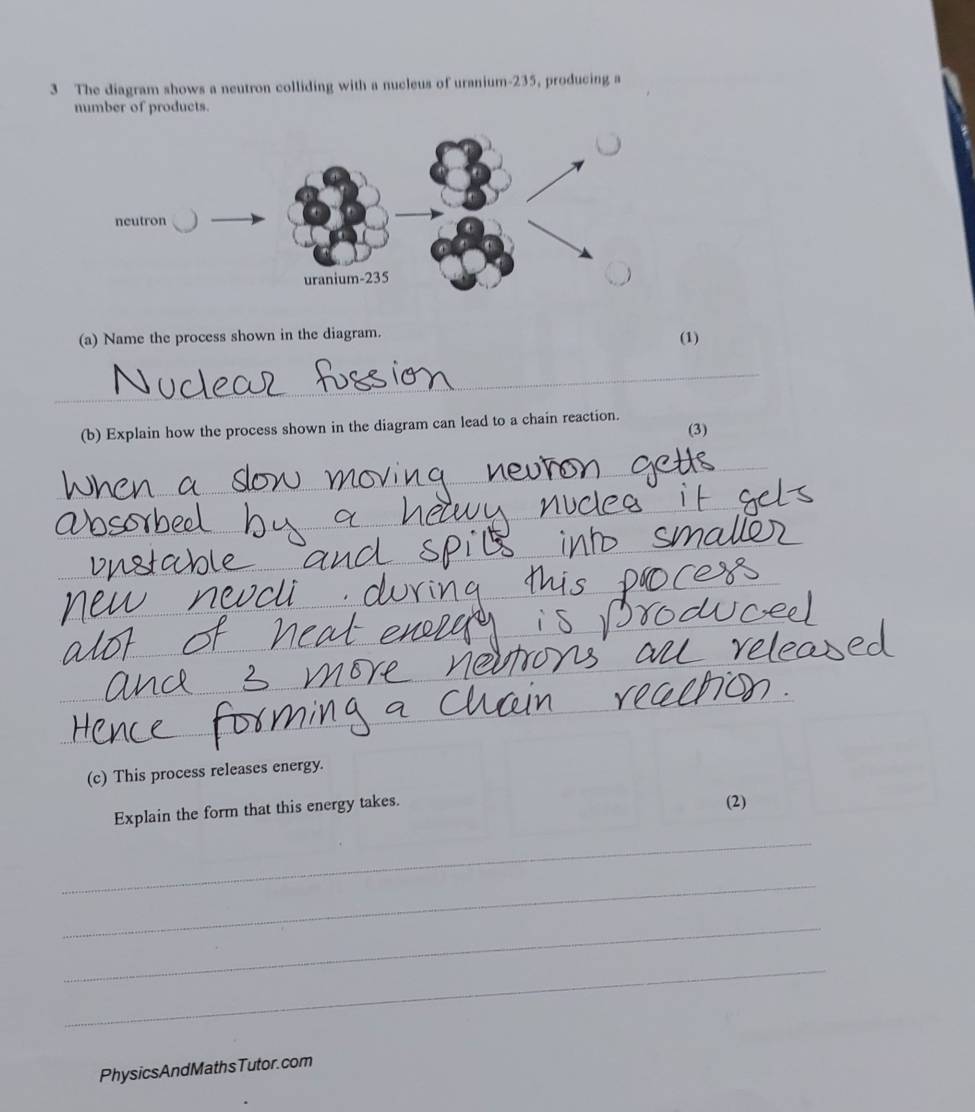 3 The diagram shows a neutron colliding with a nucleus of uranium-235, producing a
number of products.
neutron
uranium-235
(a) Name the process shown in the diagram.
(1)
Nuclear fussion
(b) Explain how the process shown in the diagram can lead to a chain reaction.
(3)
When a slow moving neutron getts
absorbed by a heavy nuclea it gels
unstable and spilts into smaller
new neucli . during this process
alot of heat energy is produced
and 3 more neutrons all released
Hence forming a chain reaction.
(c) This process releases energy.
Explain the form that this energy takes.
(2)
PhysicsAndMathsTutor.com